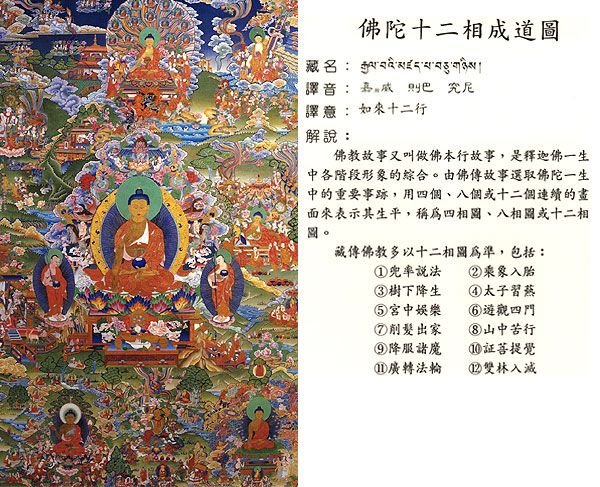 佛陀十二相成道圖
藏名：རྒྱལ་བའི་མཛད་པ་བཅུ་གཉིས།
譯音：嘉威 則巴 究尼
譯意：如來十二行
解說：
佛教故事又叫做佛本行故事，是釋迦佛一生
中各階段形象的綜合。由佛傳故事選取佛陀一生
中的重要事跡，用四個、八個或十二個連續的畫
面來表示其生平，稱為四相圖、八相圖或十二相
圖。
藏傳佛教多以十二相圖為準，包括：
①兜率說法 ②乘象入胎
③樹下降生 ④太子習藝
⑤宮中娛樂 ⑥遊觀四門
⑦削髮出家 ⑧山中苦行
⑨降服諸魔 ⑩証菩提覺
⑪廣轉法輪 ⑫雙林入滅